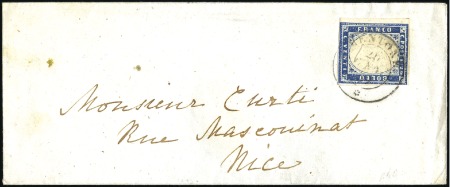 FRANCO
BOLLO
MENTONE
Monsieur Curti
Rue Mascoinat
Nice